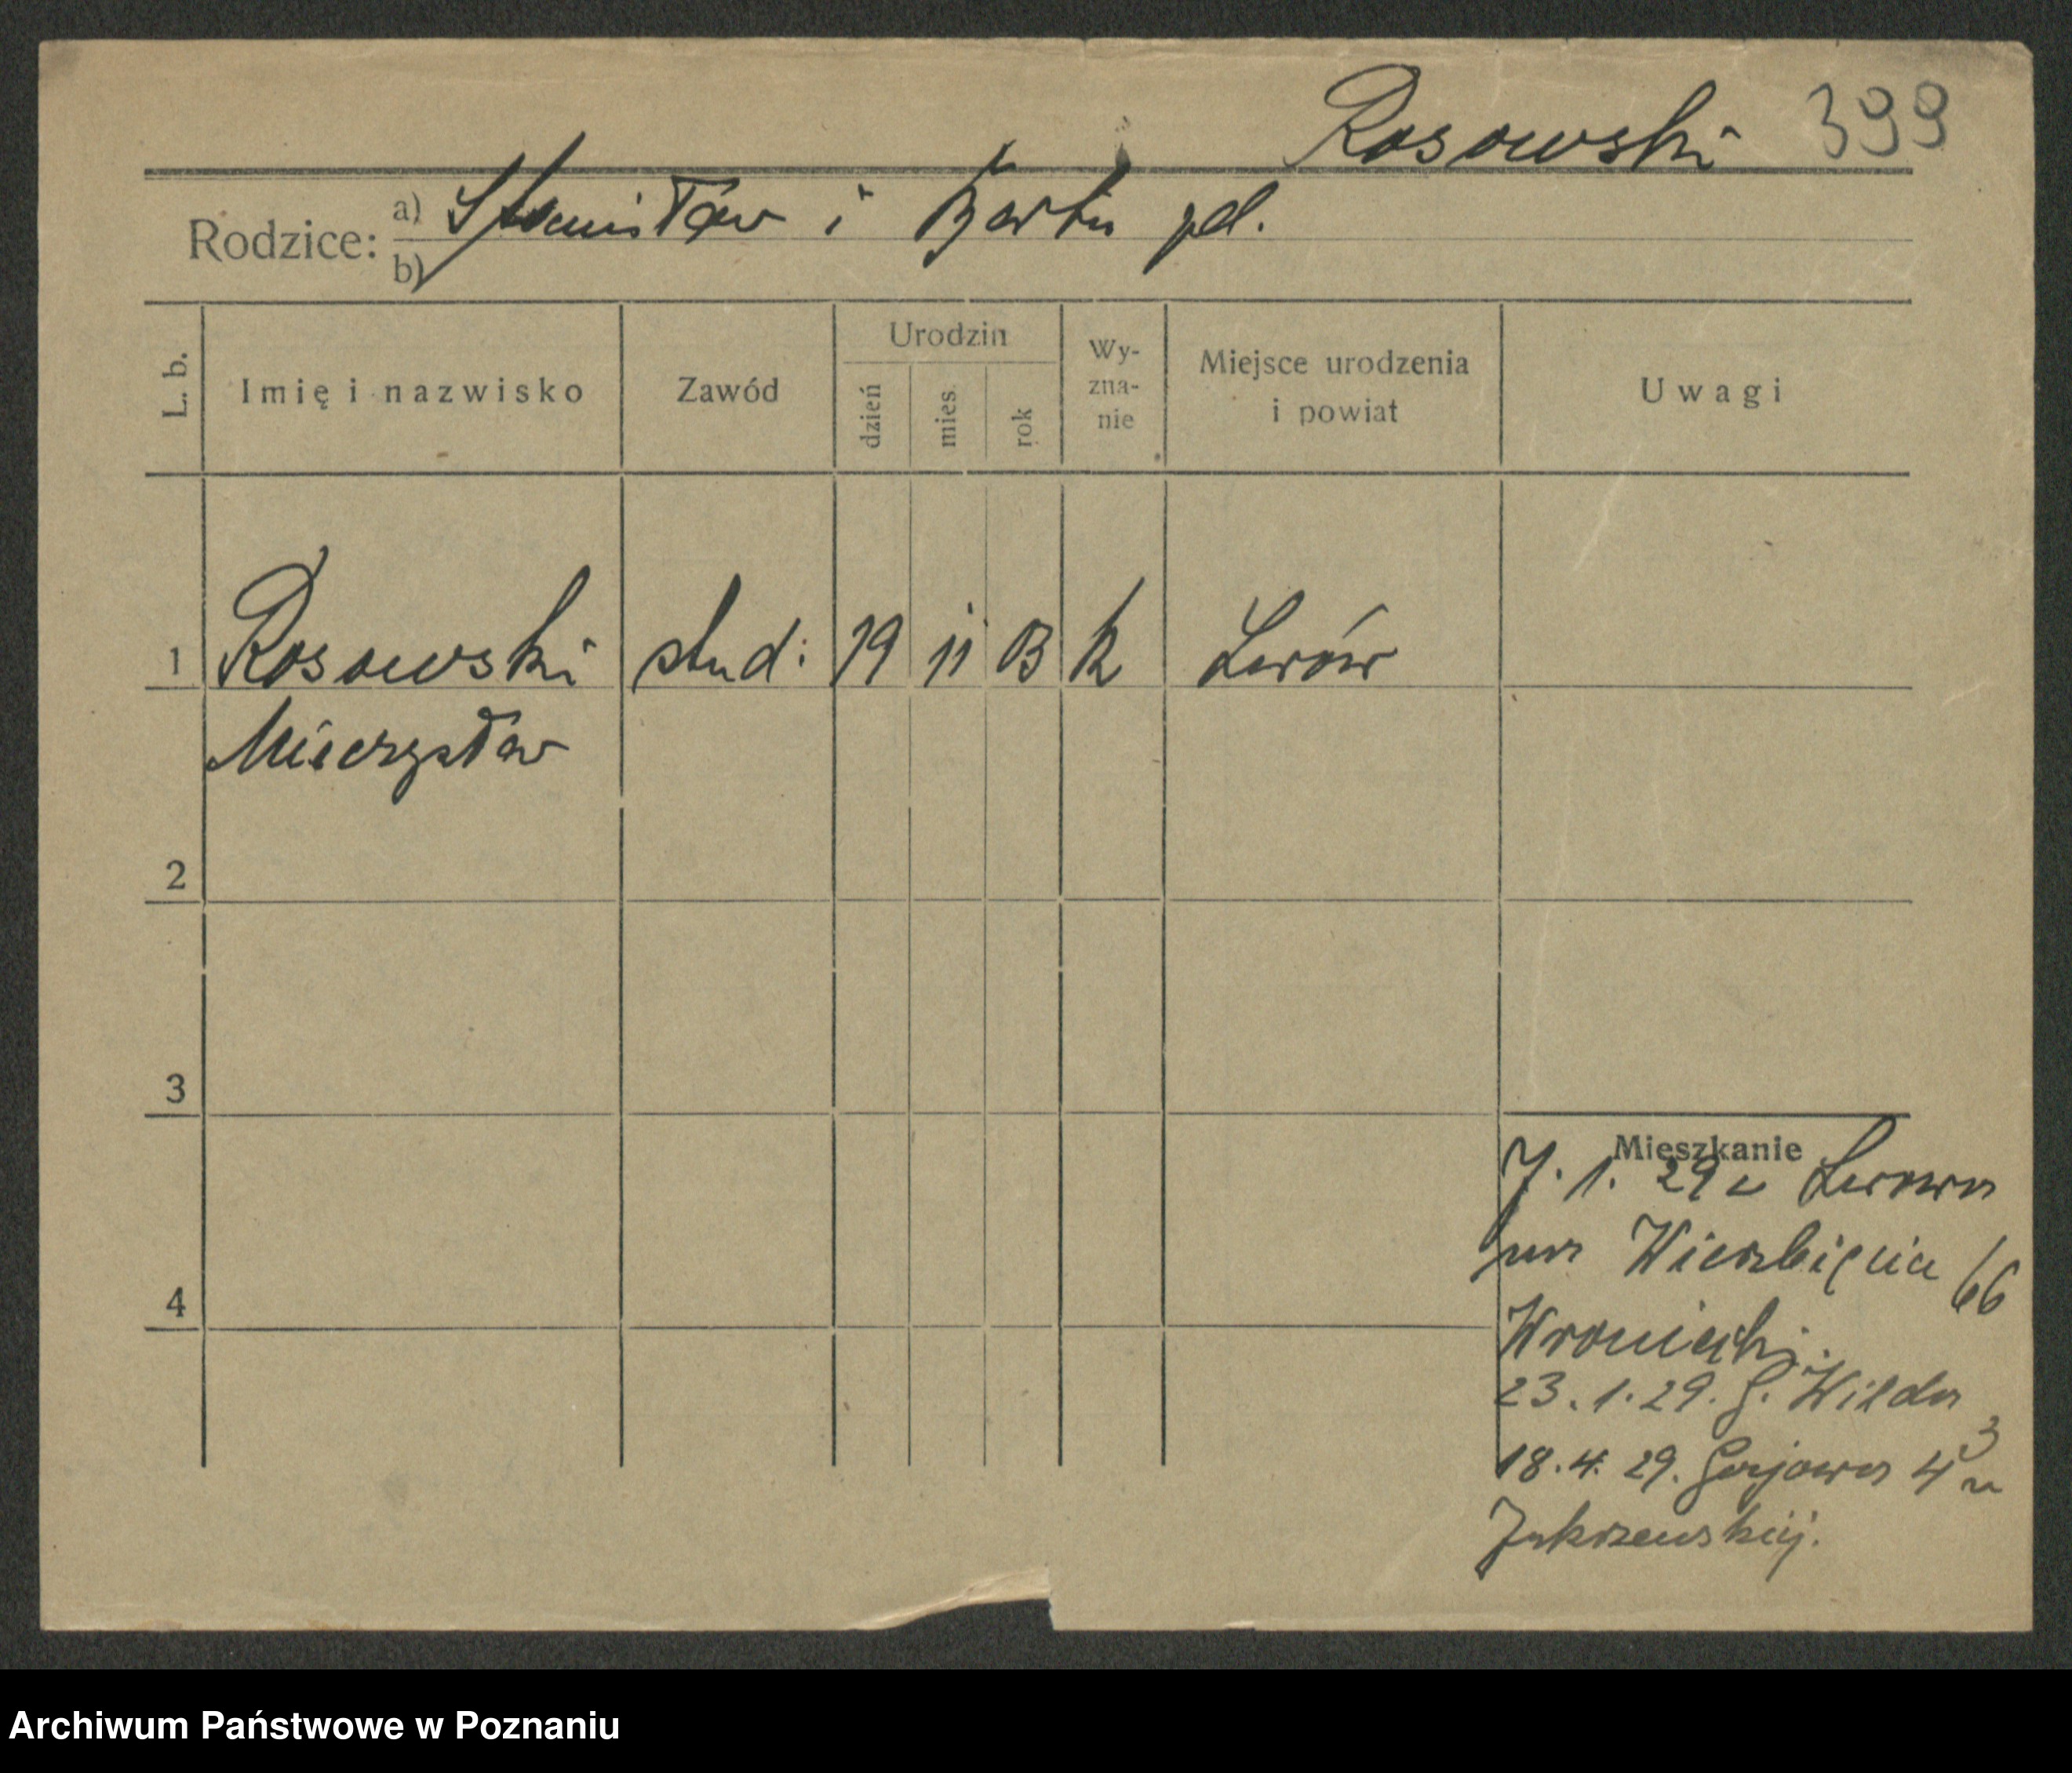 Rosowski 399
Rodzice: a) Stanisław i Berta
b)
L. b. Imię i nazwisko Zawód Urodzin dzień mies. rok Wy-zna-nie Miejsce urodzenia i powiat Uwagi
1 Rosowski stud: 19 11 03 k Lwów
Mieczysław
2
3
Mieszkanie
7. 1. 29 z Lwowa
Wierzbięcice 66
Wroniecki.
4
23. 1. 29. G. Wilda 3
18. 4. 29. Gajowa 4 u
Zakrzewskiej.
Archiwum Państwowe w Poznaniu